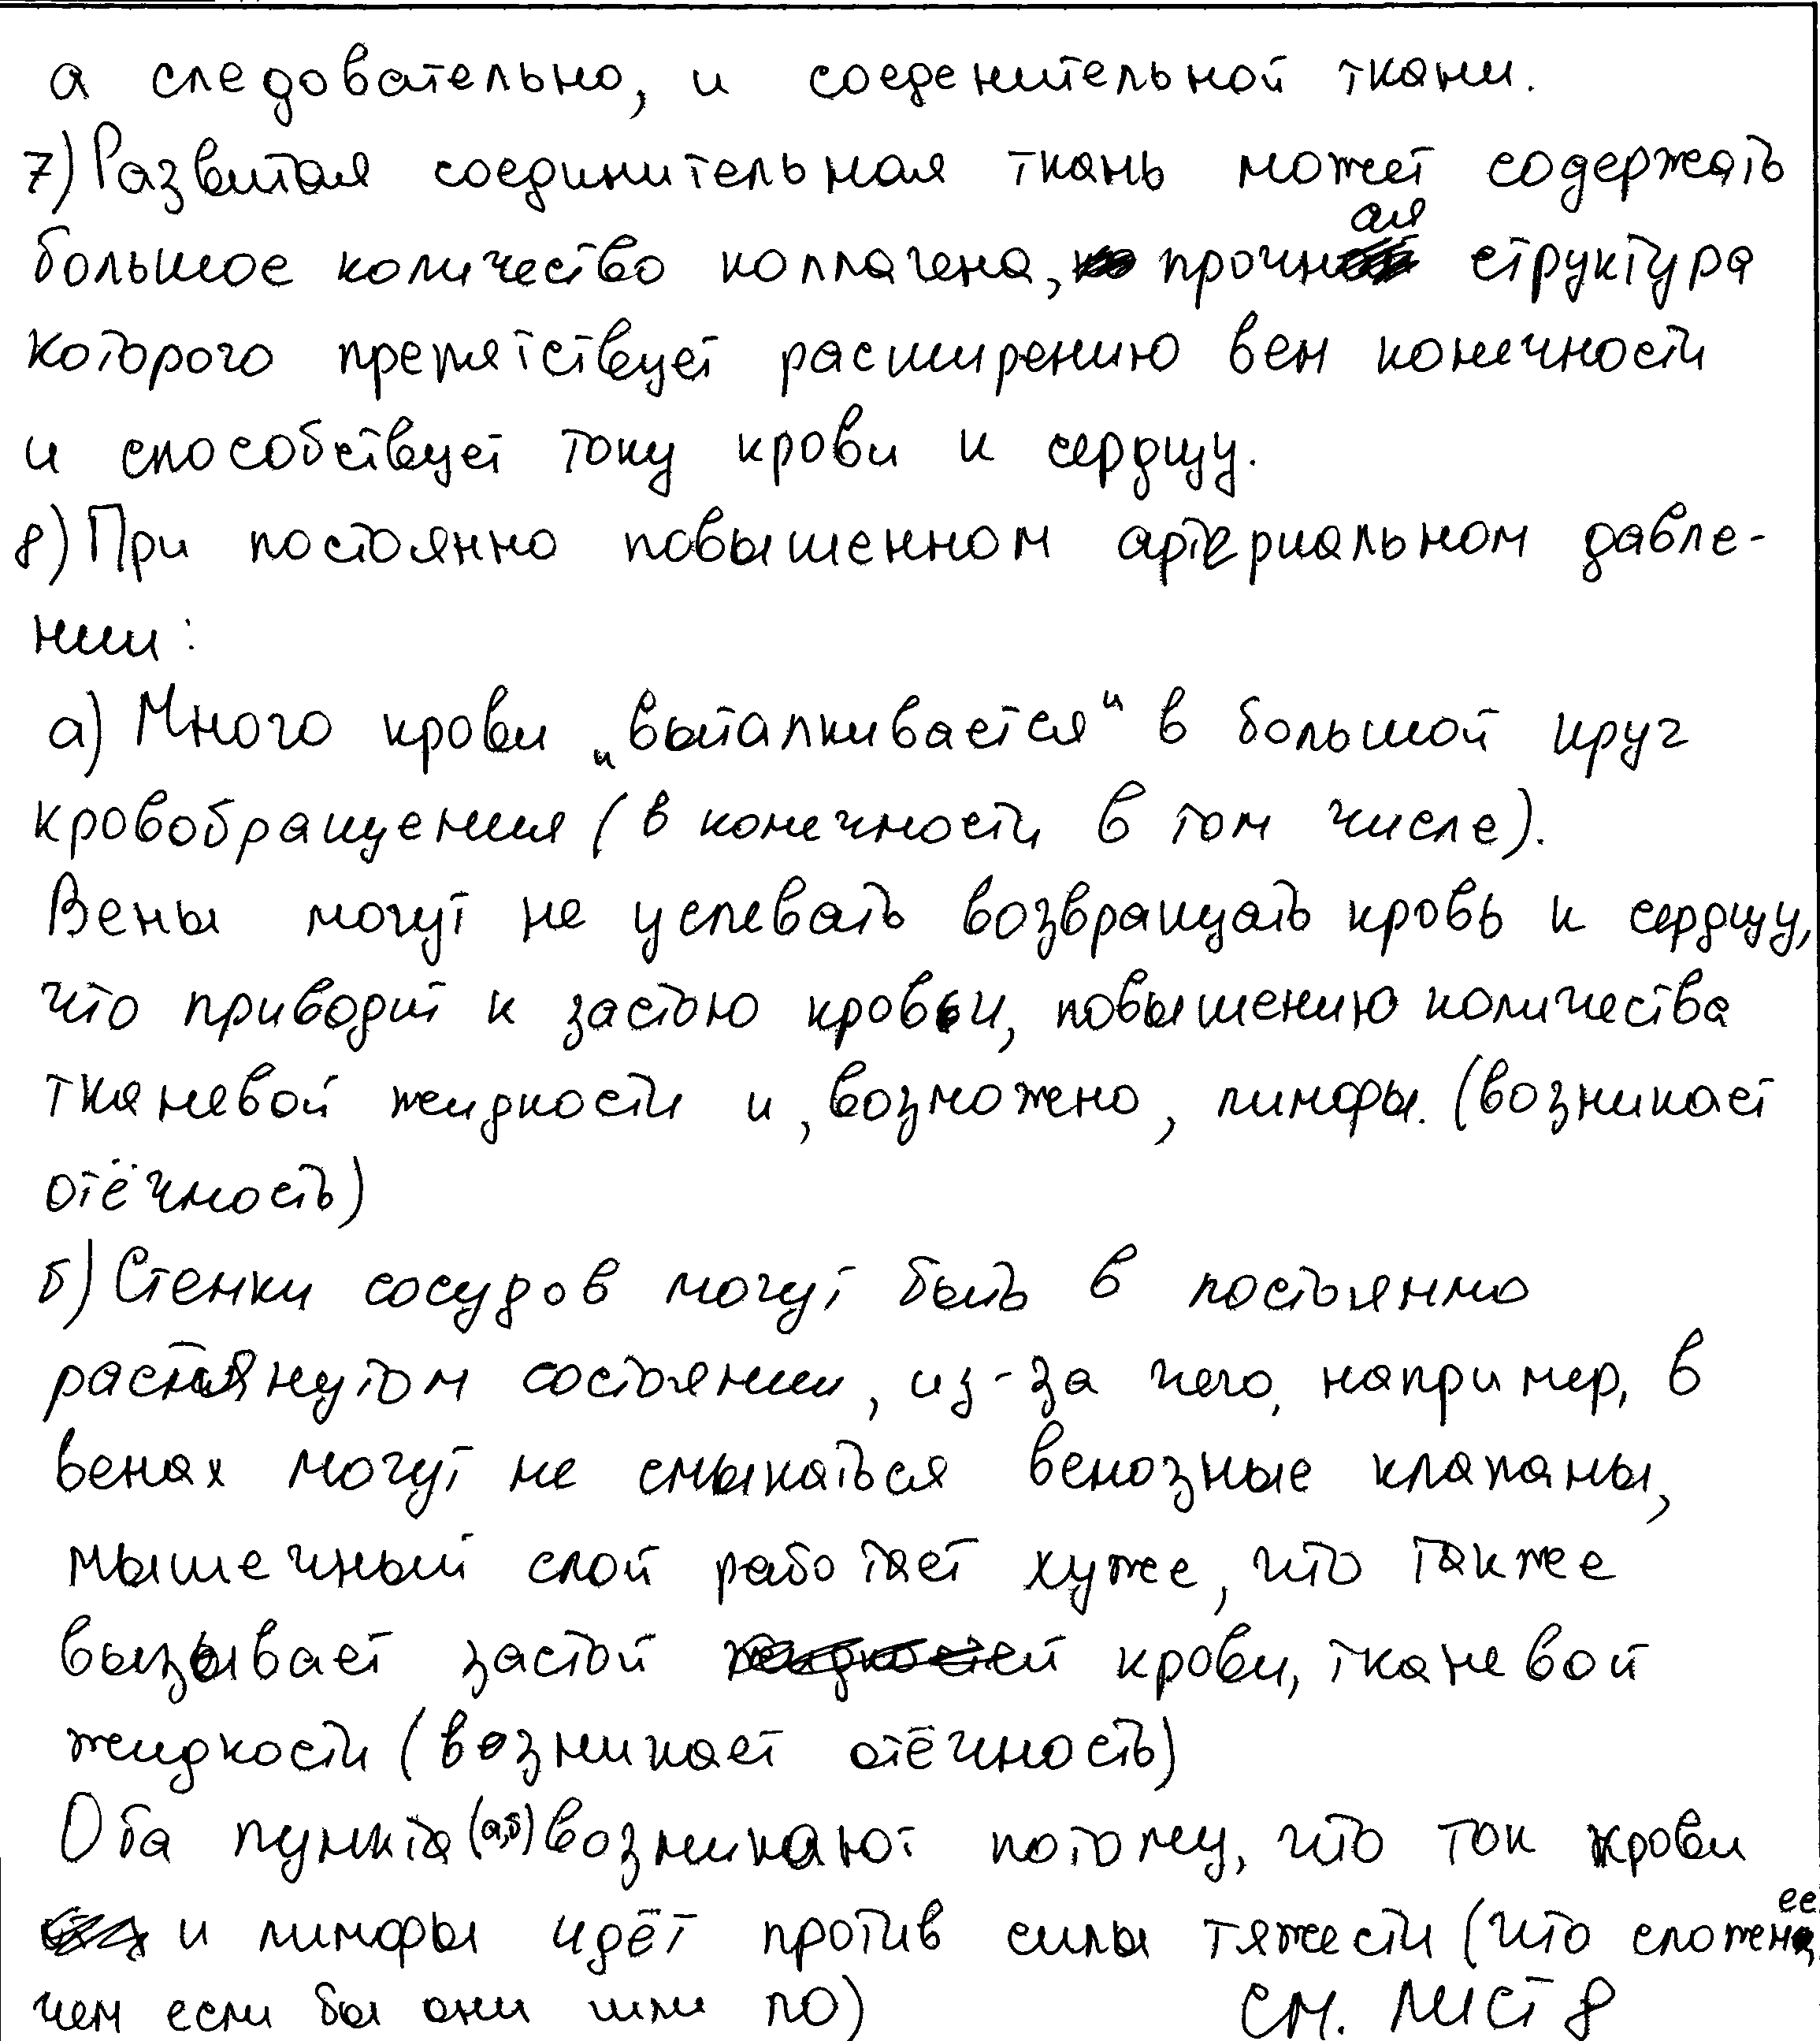 а следовательно, и соеденительной ткани.
7) Развитая соединительная ткань может содержать
большое количество коллагена, прочная структура
которого препятствует расширению вен конечности
и способствует току крови к сердцу.
8) При постоянно повышенном артериальном давле-
нии:
а) Много крови „выталкивается“ в большой круг
кровобращения (в конечности в том числе).
Вены могут не успевать возвращать кровь к сердцу,
что приводит к застою крови, повышению количества
тканевой жидкости и, возможено, лимфы. (возникает
отёчность)
б) Стенки сосудов могут быть в постоянно
растянутом состоянии, из-за чего, например, в
венах могут не смыкаться венозные клапаны,
мышечный слой работает хуже, что также
вызывает застой крови, тканевой
жидкости (возникает отёчность)
Оба пункта (а,б) возникают потому, что ток крови
и лимфы идёт против силы тяжести (что сложнее,
чем если бы они шли по) см. лист 8